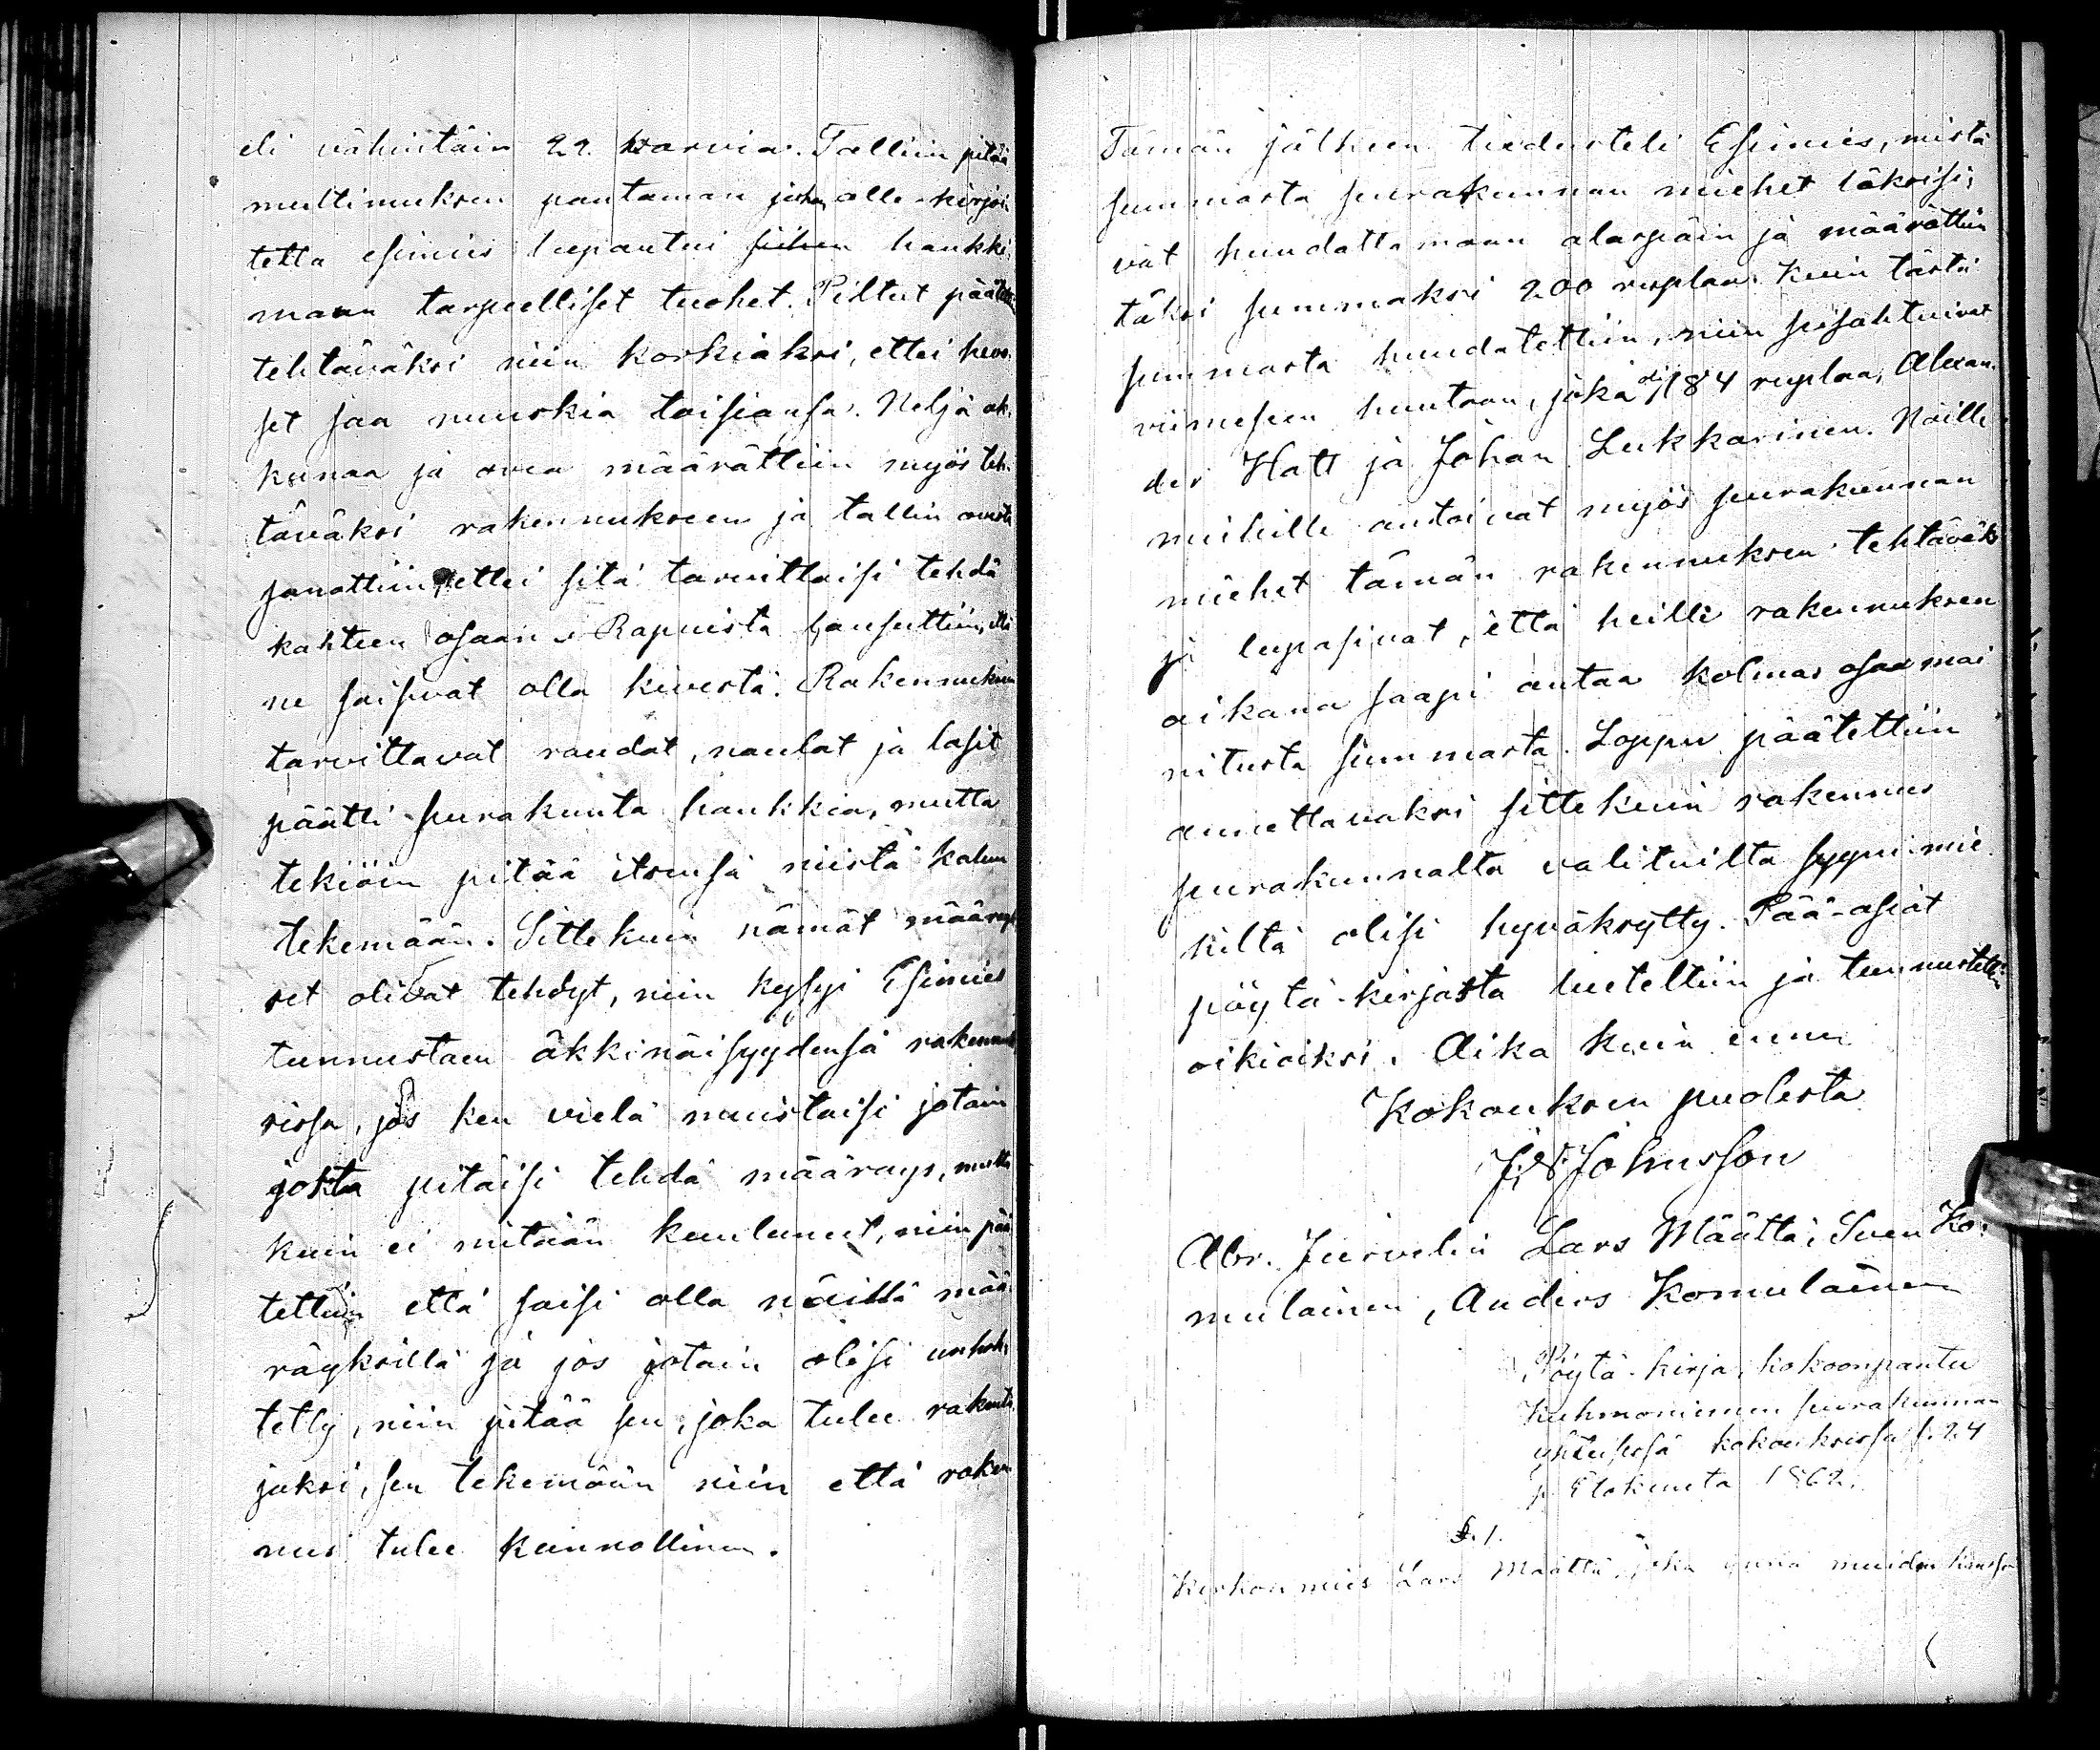 eli vähintäin 22. warvia. Talliin pitää
multimuksen pantaman johon alle-kirjoi-
tettu esimies lupautui siihen hankki-
maan tarpeelliset tuohet. Piltut päätettiin
tehtäväksi niin korkiaksi, ettei hevo-
set saa nuuskia toisiansa. Neljä ak-
kunaa ja ovea määrättiin myös teh-
täväksi rakennukseen ja tallin ovesta
sanottiin, ettei sitä tarvittaisi tehdä
kahteen osaan. Rapuista lausuttiin, että
ne saisivat olla kivestä. Rakennukseen
tarvittavat raudat, naulat ja lasit
päätti seurakunta hankkia, mutta
tekiöin pitää itsensä niistä kalun
tekemään. Sitte kuin nämät määräyk
set olivat tehdyt, niin kysyi Esimies
tunnustaen äkkinäisyydensä rakennuk
sissa, jos ken vielä muistaisi jotain
josta pitäisi tehdä määräys, mutta
kuin ei mitään kuulunut, niin pää
tettiin että saisi olla näillä mää-
räyksillä ja jos jotain olisi unhoh-
tetty, niin pitää sen, joka tulee rakenta-
jaksi, sen tekemään niin että raken
nus tulee kunnollinen.
Tämän jälkeen tiedusteli Esimies, mistä
summasta seurakunnan miehet läksisi-
vät huudattamaan alaspäin ja määrättiin
täksi summaksi 200 ruplaa. Kuin tästä
summasta huudatettiin, niin seisahtuivat
viimeseen huutoon, joka oli 184 ruplaa, Alexan-
der Hatt ja Johan Lukkarinen. Näille
miehille antoivat myös seurakunnan
miehet tämän rakennuksen tehtäväksi
ja lupasivat, että heille rakennuksen
aikana saapi antaa kolmas osa mai
nitusta summasta. Loppu päätettiin
annettavaksi sitte kuin rakennus
seurakunnalta valituilta syyni-mie
hiltä olisi hyväksytty. Pää-asiat
pöytä-kirjasta lueteltiin ja tunnustettiin
oikiaksi. Aika kuin ennen
Kokouksen puolesta
J. W. Johnsson
Abr. Juvelin Lars Määttä, Sven Ko-
mulainen, Anders Komulainen
Pöytä-kirja, kokoonpantu
Kuhmoniemen seurakunnan
yhteisessä kokouksessa s. 24
p. Elokuuta 1862.
§. 1.
Kirkon mies Lars Määttä, joka ynnä muiden kanssa